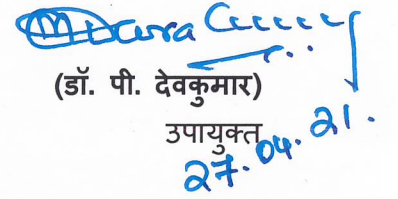 (डॉ. पी. देवकुमार)
उपायुक्त
27.04.21.